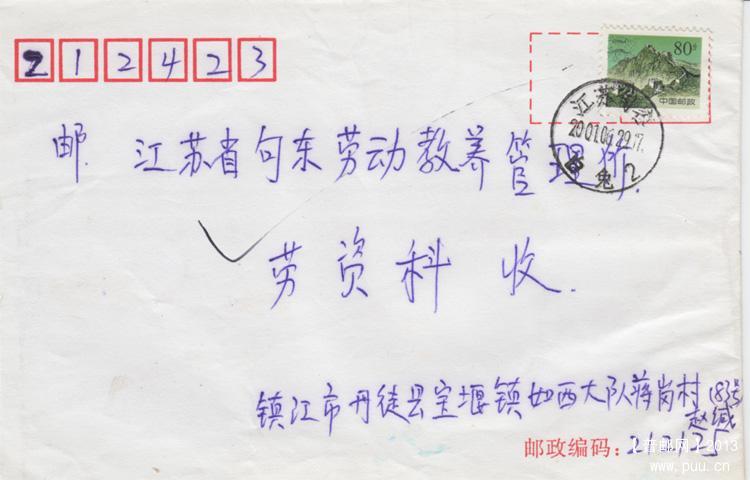 212423
80分
中国邮政
江苏
2001.06.29.17
兔 2
邮 江苏省句东劳动教养管理所
劳资科 收.
镇江市丹徒县宝堰镇如西大队蒋岗村183号
赵缄
邮政编码：
普邮网 2013
www.puu.cn